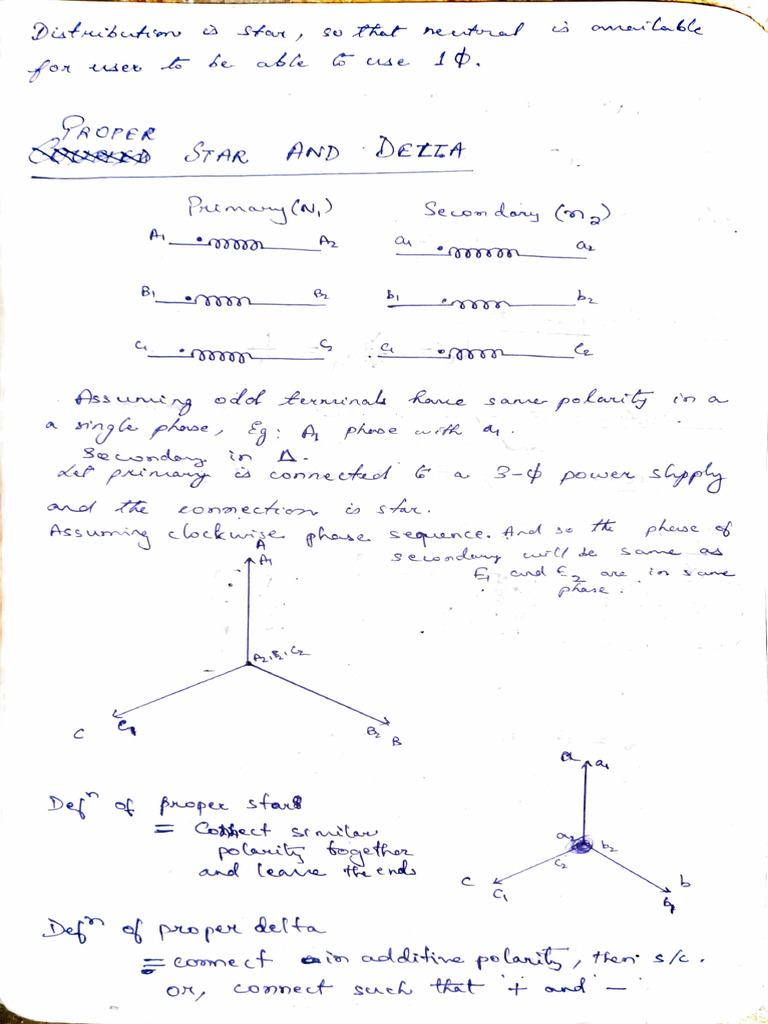 Distribution is star, so that neutral is available
for user to be able to use 1ϕ.
PROPER
STAR AND DELTA
Primary (N1) Secondary (n2)
A1 A2 a1 a2
B1 B2 b1 b2
C1 C2 c1 c2
Assuming odd terminals have same polarity in a
a single phase, Eg: A1 phase with a1.
Secondary in Δ.
Let primary is connected to a 3-ϕ power supply
and the connection is star.
Assuming clockwise phase sequence. And so the phase of
secondary will be same as
E1 and E2 are in same
phase.
A
A1
A2, B2, C2
C C1
B2 B
a a1
a2 b2
c2
c C1
b
Defn of proper star
= Connect similar
polarity together
and leave the ends
Defn of proper delta
= connect in additive polarity, then s/c.
or, connect such that + and -